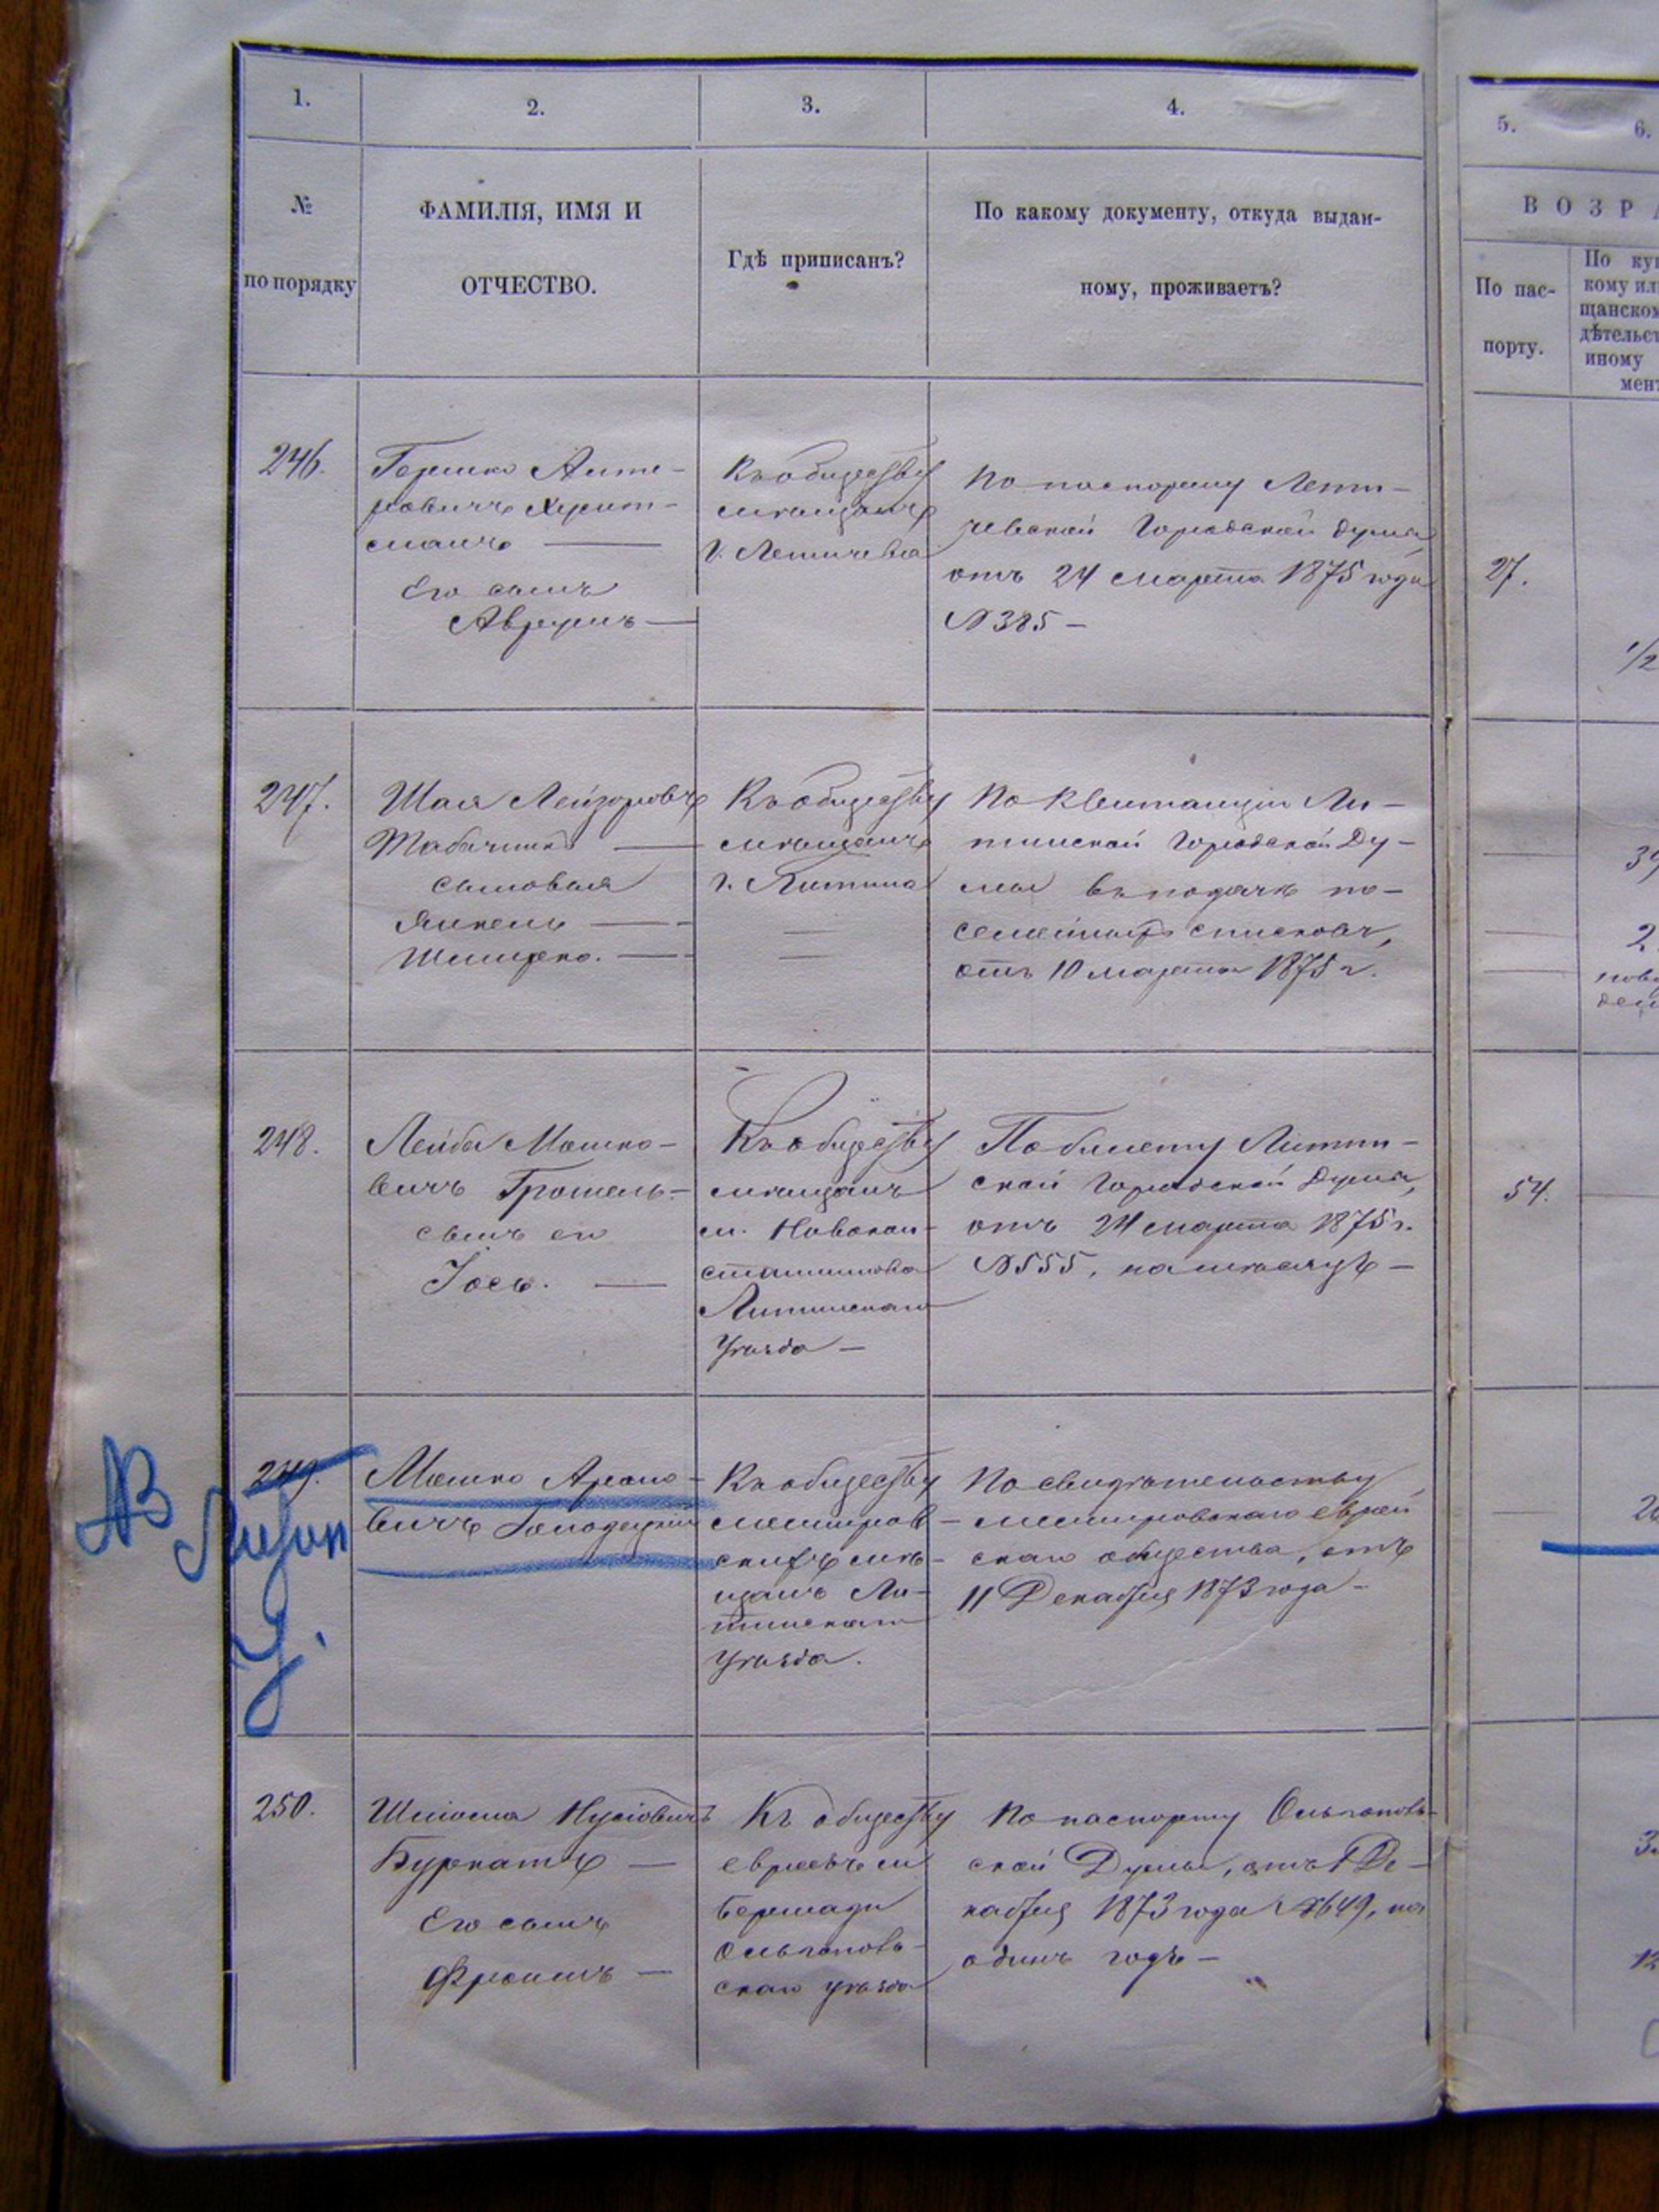 1.
2.
3.
4.
5.
6.
№
по порядку
ФАМИЛІЯ, ИМЯ И
ОТЧЕСТВО.
Гдѣ приписанъ?
По какому документу, откуда выдан-
ному, проживаетъ?
ВОЗРА
По пас-
порту.
По куп
кому или
щанском
дѣтельст
иному
мент
246.
Гершко
его сынъ
Аврумъ —
Къ обществу
мѣщанъ
г. Летичева
По паспорту Лети-
чевской Городской Думы,
отъ 24 марта 1875 года
№ 385 —
27.
1/2
247.
Шая Лейзоровъ
Табачникъ —
сыновья
Янкель —
Шмерко. —
Къ обществу
мѣщанъ
г. Литина
По квитанціи Ли-
тинской Городской Ду-
мы въ подачѣ по-
семейныхъ списковъ,
отъ 10 марта 1875 г.
248.
Лейба Мошко-
вичъ
сынъ его
Іось. —
Къ обществу
мѣщанъ
м. Новокон-
стантинова
Литинскаго
уѣзда —
По билету Литин-
ской Городской Думы,
отъ 24 марта 1875 г.
№ 555, на мѣсяцъ —
54.
249.
Мошко Ароно-
вичъ
Къ обществу
мѣ-
щанъ Ли-
тинскаго
уѣзда.
По свидѣтельству
еврей
скаго общества, отъ
11 Декабря 1873 года —
250.
Шліома Нусіовичъ
Буркатъ —
Его сынъ
Фроимъ —
Къ обществу
евреевъ м
Бершади
Ольгопов-
скаго уѣзда
По паспорту Ольгопов-
ской Думы, отъ 1 Де-
кабря 1873 года № 649, на
одинъ годъ —